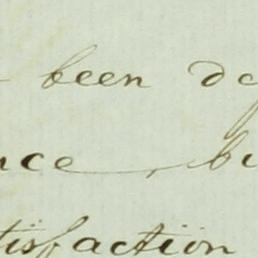 been de
nce, bu
tisfaction